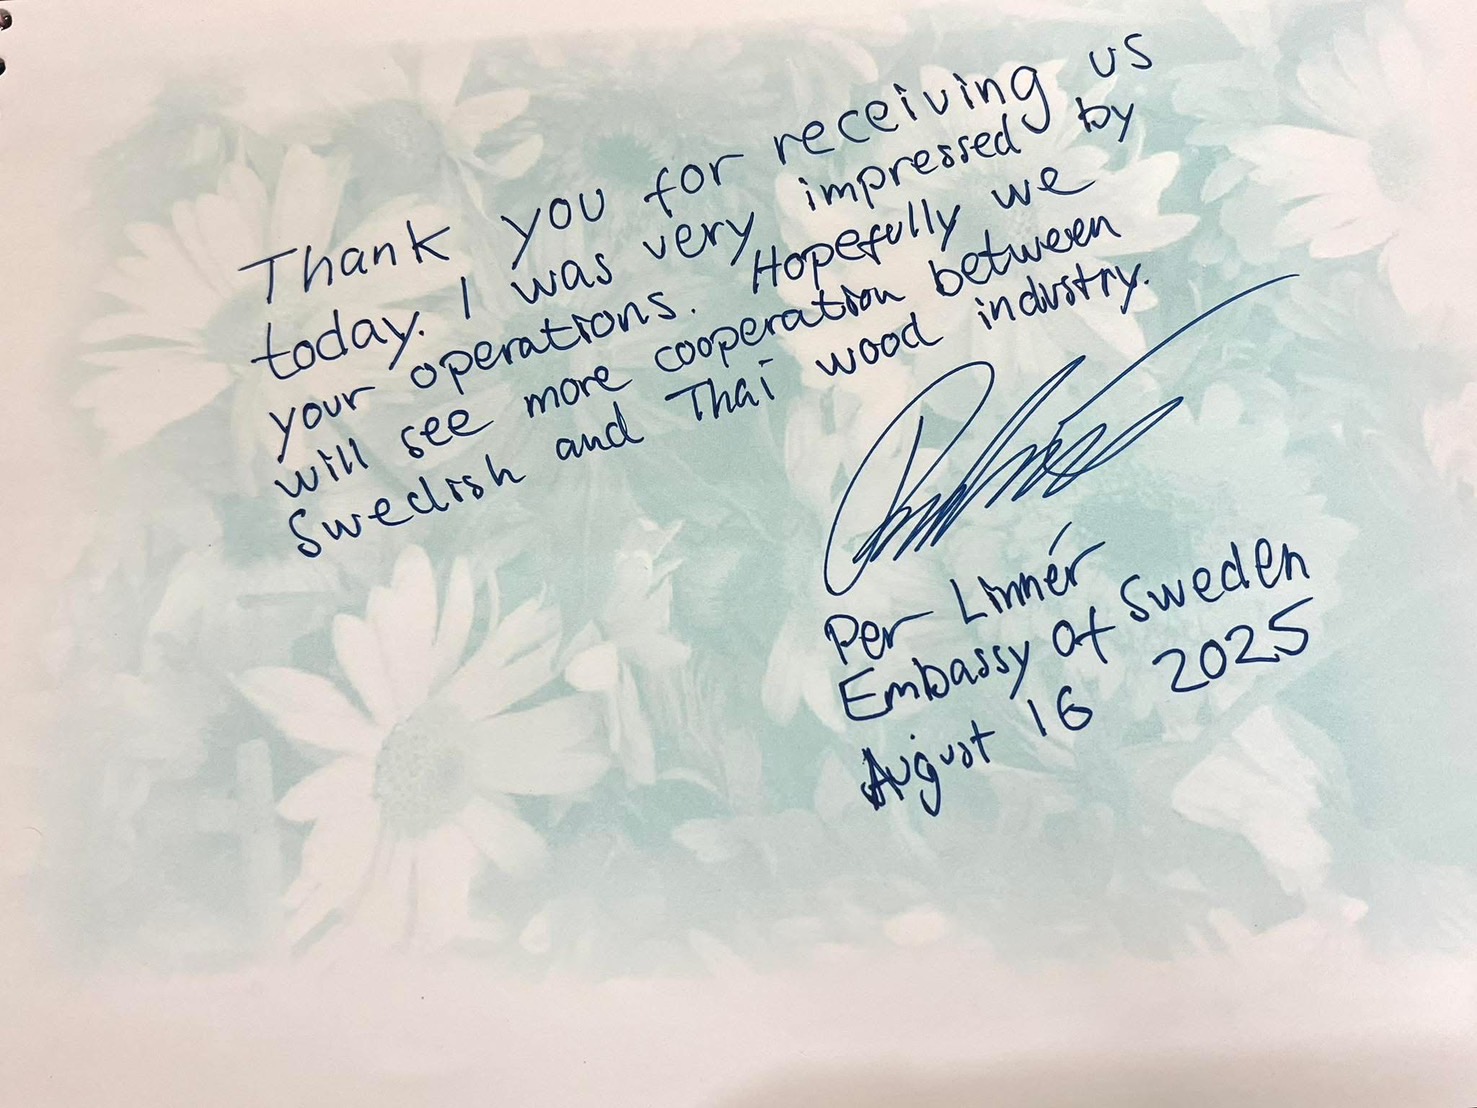 Thank you for receiving us
today. I was very impressed by
your operations. Hopefully we
will see more cooperation between
Swedish and Thai wood industry.
Per Linnér
Embassy of Sweden
August 16 2025